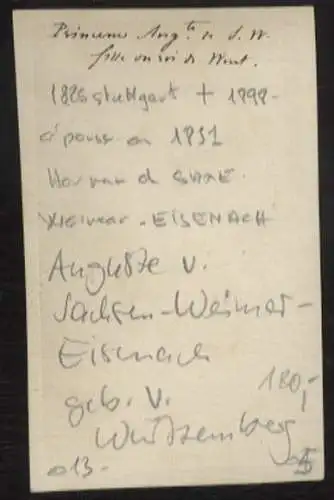 Princesse Aug^te de S. W.
fille du roi de Wurt.
1826 Stuttgart + 1898-
épouse en 1851
Herman de SAXE
Weimar-EISENACH
Auguste v.
Sachsen-Weimar-
Eisenach
180,-
geb. v.
Württemberg
013-